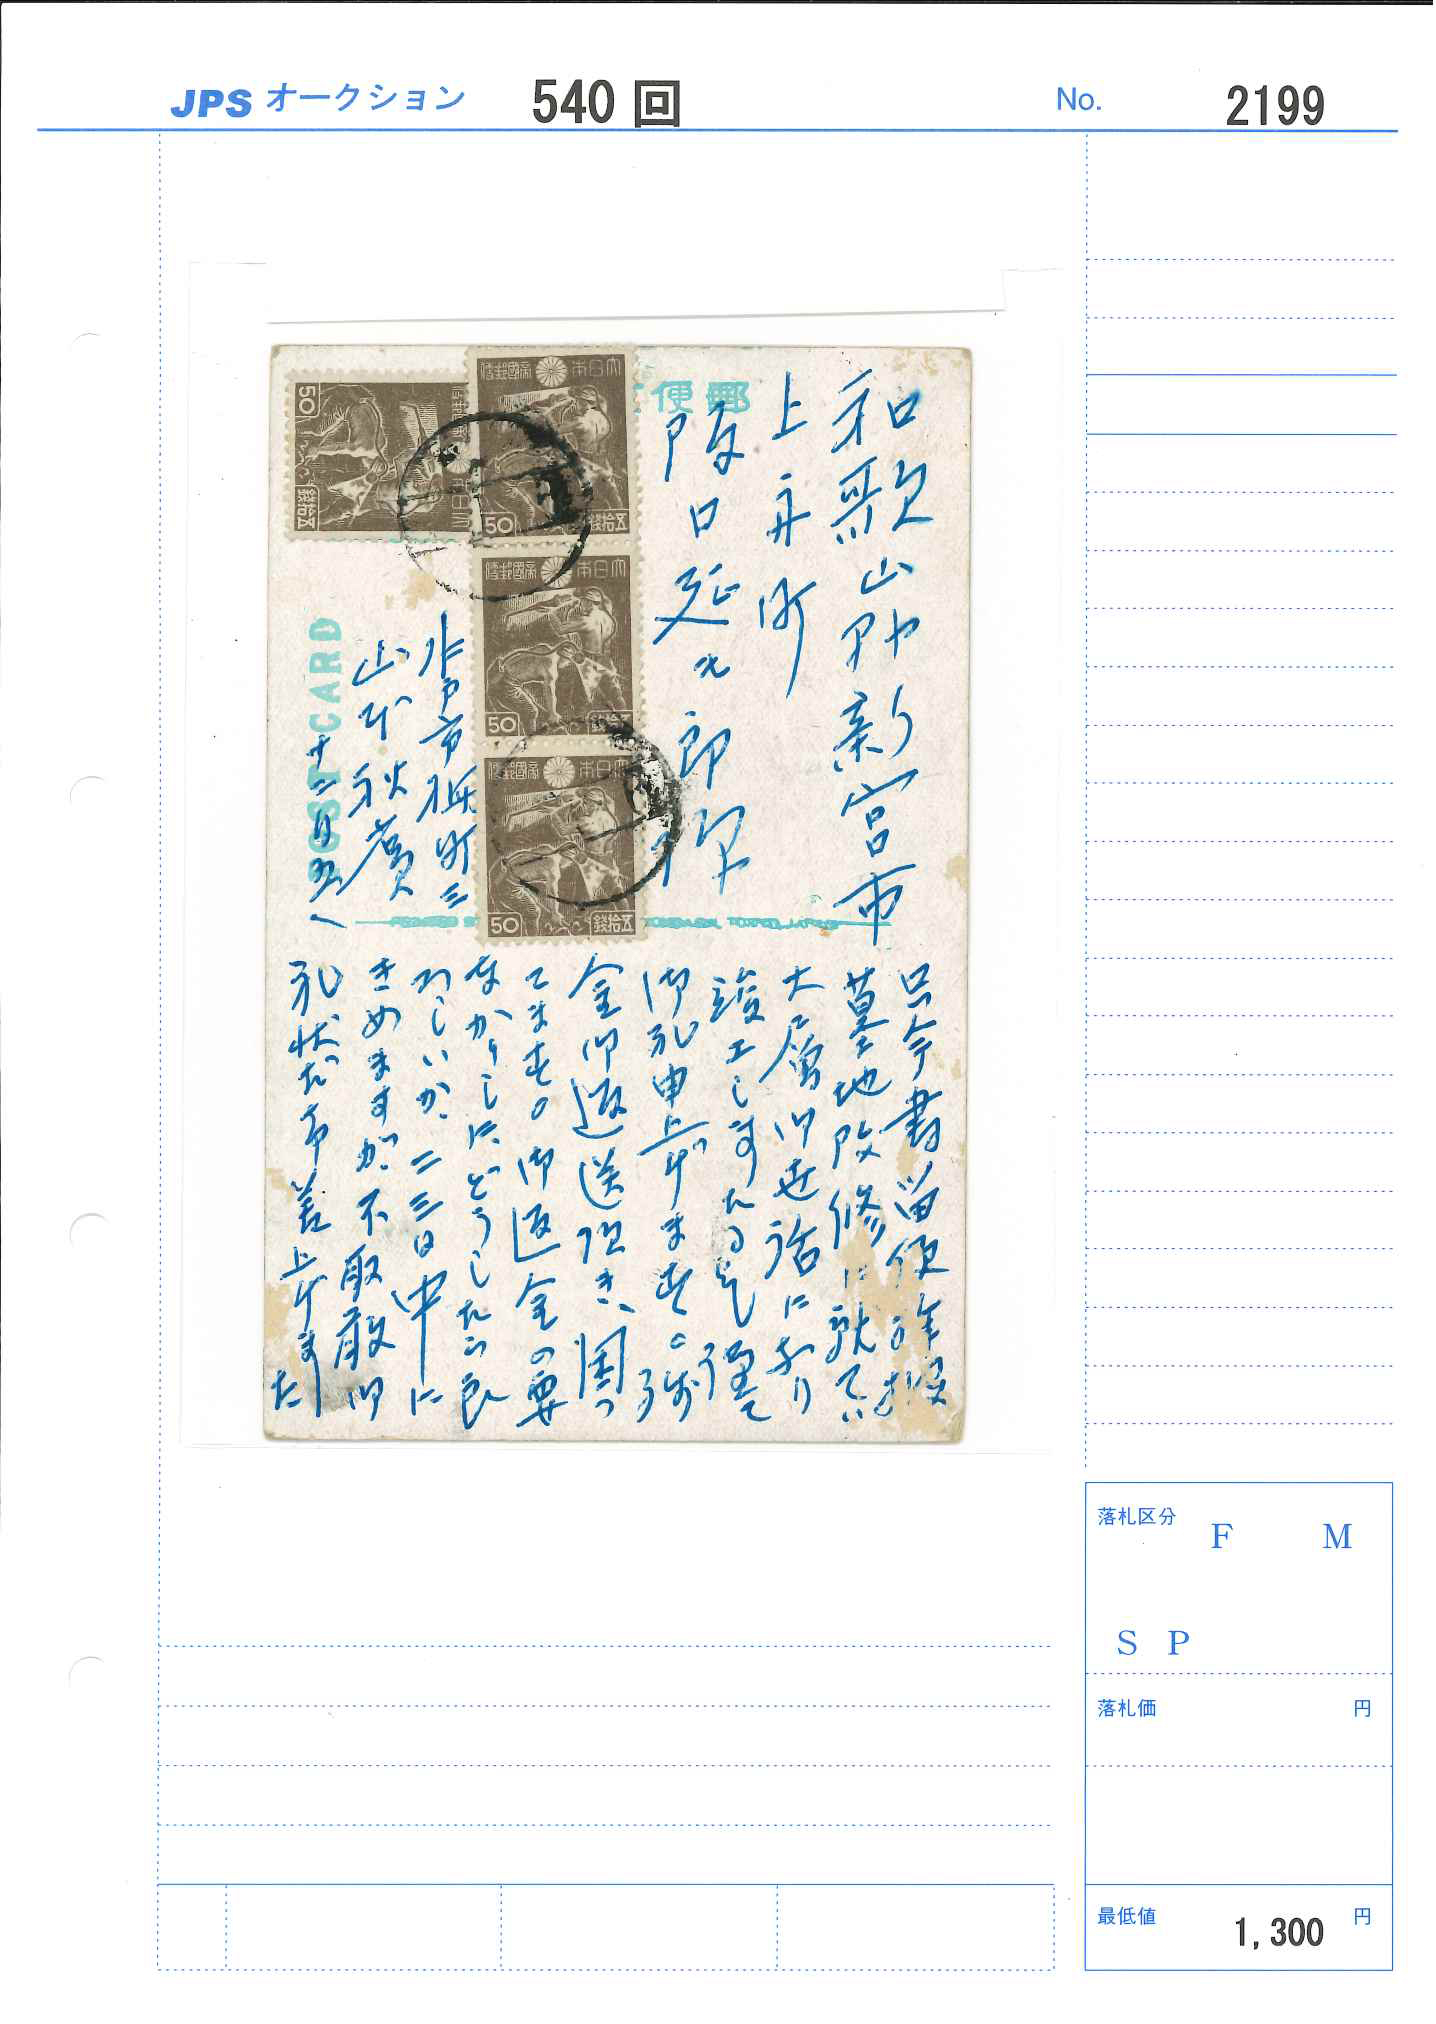 JPS オークション 540 回 No. 2199
郵便
POST CARD
大日本帝國郵便
50 五拾錢
大日本帝國郵便
50 五拾錢
大日本帝國郵便
50 五拾錢
大日本帝國郵便
50 五拾錢
和歌山縣新宮市
上本町
阪口延太郎
市 町三
山本秋廣
十二月九
只今書留便
墓地改修に就て
大層御世話になり
竣工しました
御礼申上げます
金御返送
てます 御返金の要
なかりしにどうしたら良
ろしいか、二三日中に
きめますが不取敢御
礼状だけ差上げました
落札区分 F M
S P
落札価 円
最低値 1,300 円